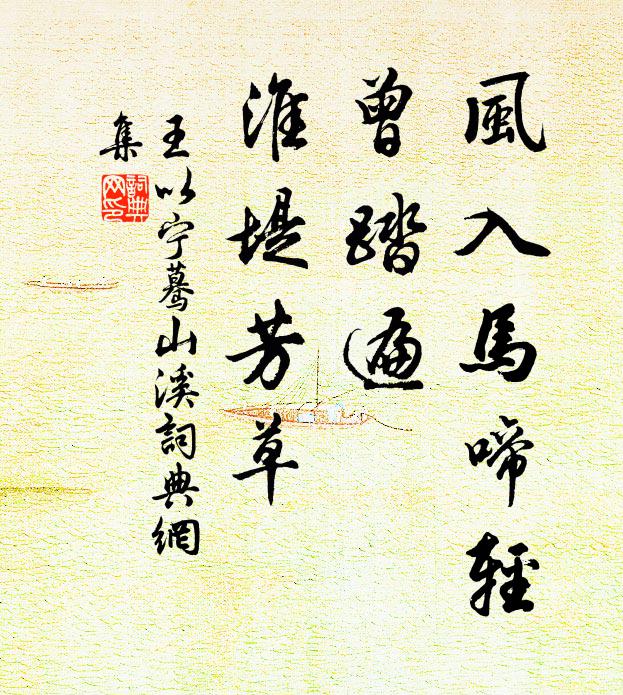 風入馬啼輕
曾踏遍
淮堤芳草
王以宁驀山溪詞典網
集
詞典
网印